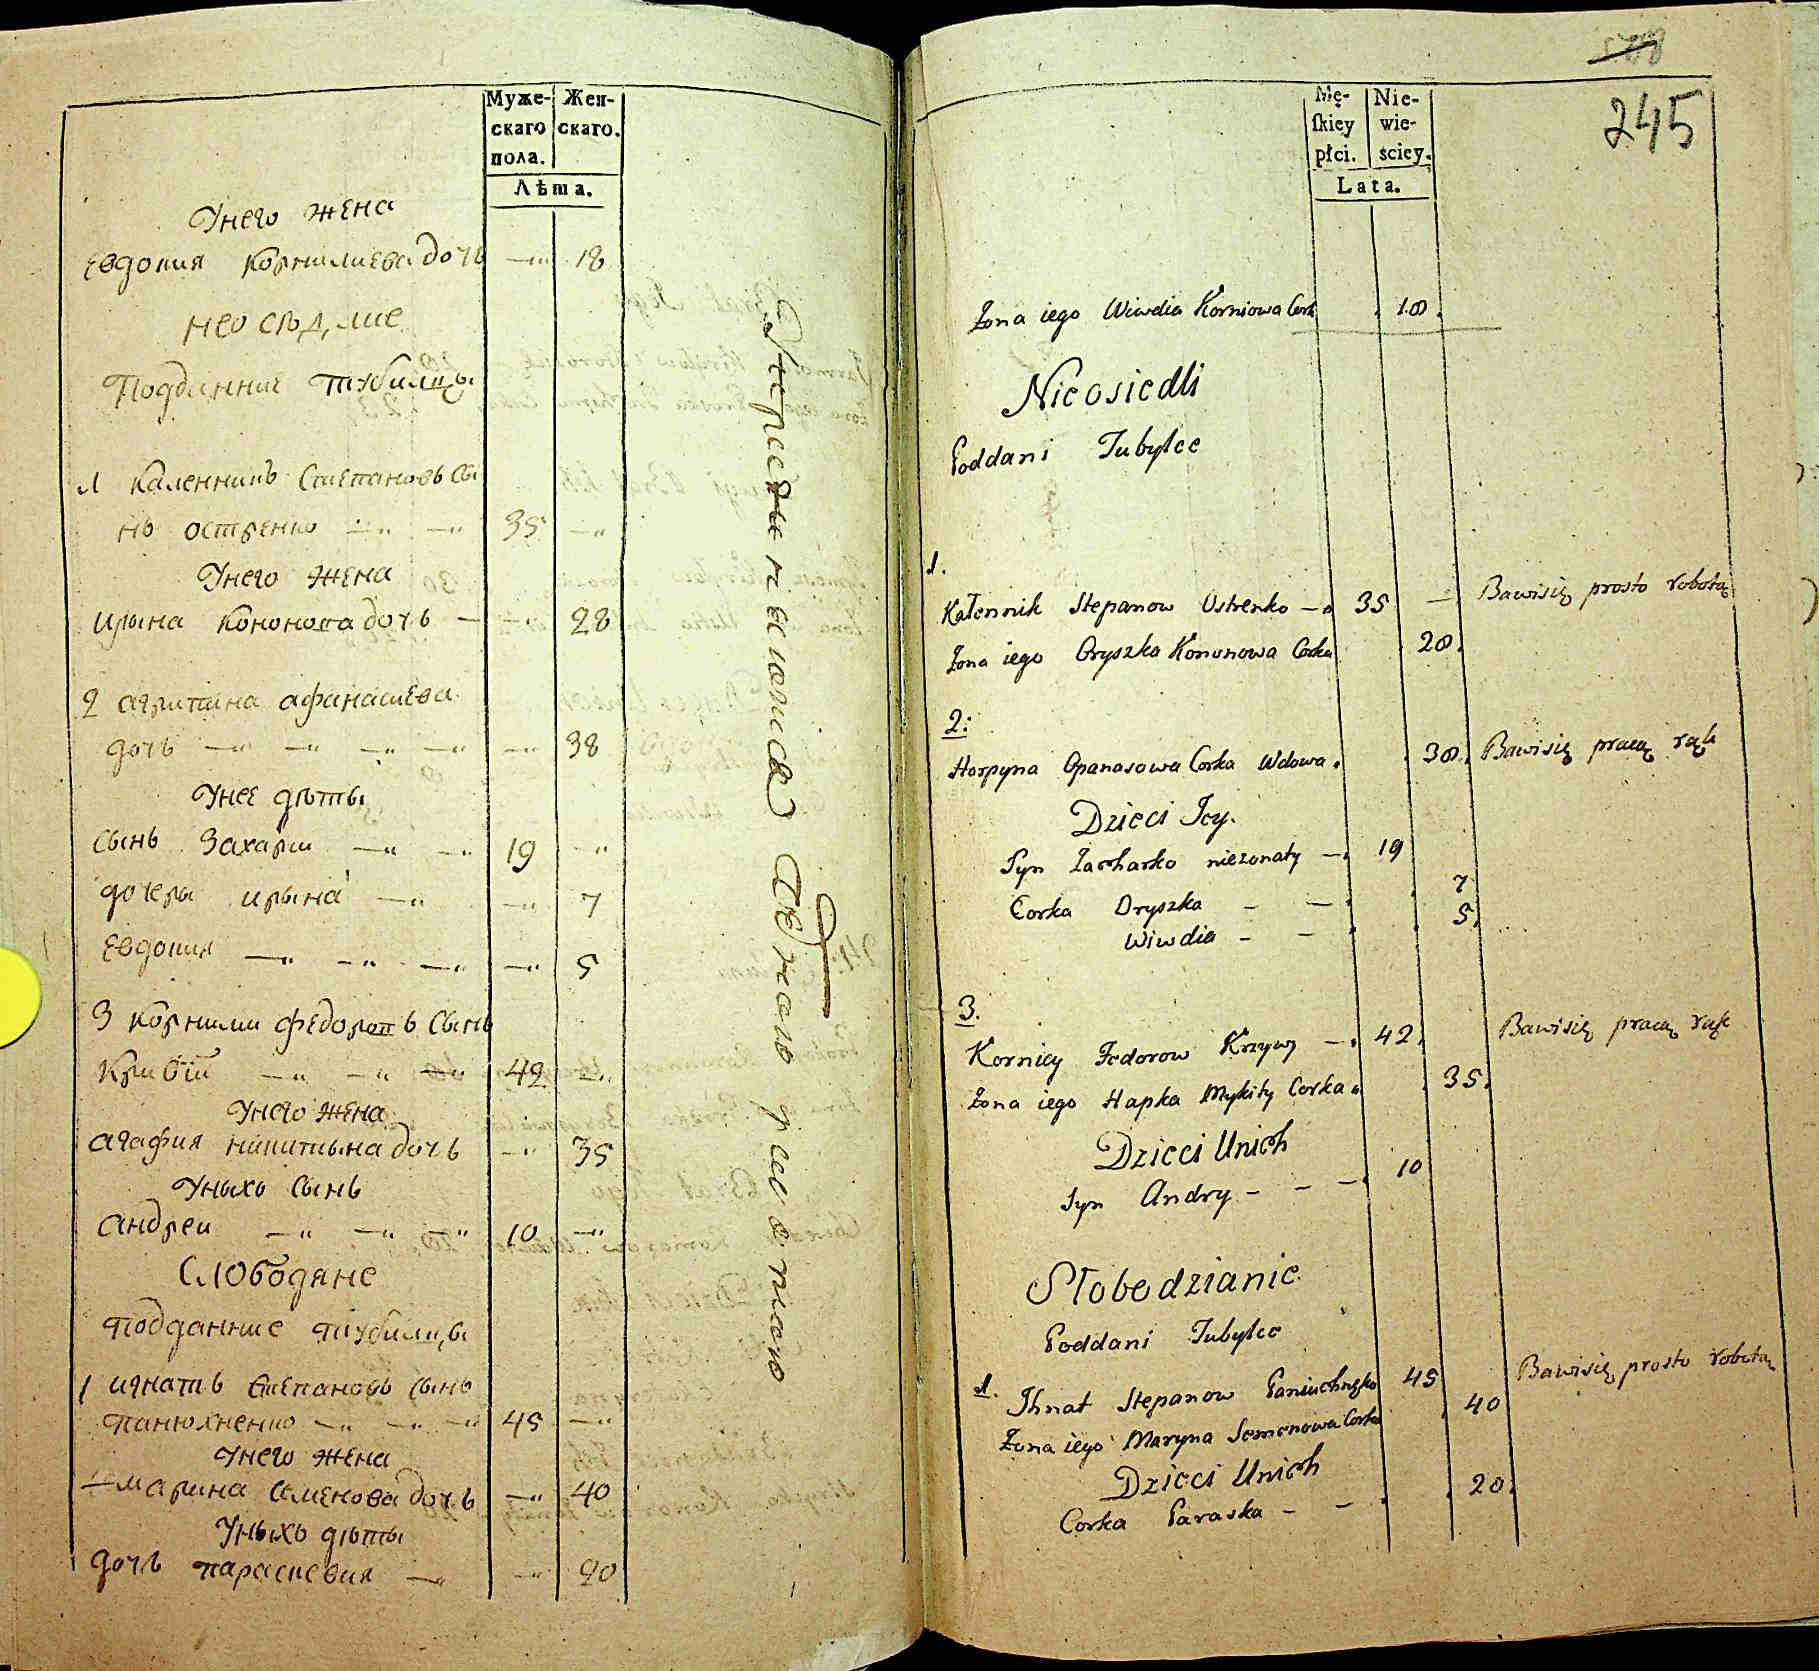 Муже-
скаго
пола.
Жен-
скаго.
Лѣта.
Унего жена
Евдокия Корнилиева дочь —„ 18
неоседлие
Подданние тубилцы
1 Каленникъ Степановъ сы
нъ острѣнко —„ —„ 35 —„
Унего жена
Ирына Кононова дочь — —„ 28
2 агрипина афанасиева
дочь —„ —„ —„ —„ —„ 38
Унее дѣты
сынъ Захарии —„ —„ 19 —„
дочеры ирына —„ —„ 7
Евдокия —„ —„ —„ —„ 5
3 корнилии федоровъ сынъ
Кривии —„ —„ —„ 42 —„
Унего жена
агафия никитына дочь —„ 35
Уныхъ сынъ
андреи —„ —„ —„ 10 —„
Слободяне
Подданние тубилцы
1 игнатъ степановъ сынъ
панюхненко —„ —„ —„ 45 —„
Унего жена
—марина семенова дочь —„ 40
Уныхъ дѣты
дочь параскевия —„ —„ 20
588
245
Mę-
ſkiey
płci.
Nie-
wie-
sciey.
Lata.
Zona iego Wiwdia Korniowa Cork 18.
Nieosiedli
Poddani Tubylce
1.
Kałennik Stepanow Ostrenko — 35 — Bawisię prosto robotą
Zona iego Oryszka Kononowa Corka 28.
2:
Horpyna Opanasowa Corka Wdowa. 38. Bawisię pracą rąk
Dzieci Jey.
Syn Zacharko niezonaty — 19
Corka Oryszka — — 7
Wiwdia — — 5.
3.
Korniey Fedorow Krzywy — 42. Bawisię pracą rąk
Zona iego Hapka Mykity Corka 35.
Dzieci Unich
Syn Andry — — — 10
Słobodzianie
Poddani Tubylce
1. Ihnat Stepanow Paniuchnęko 45 Bawisię prosto robotą
Zona iego Maryna Semenowa Corka 40
Dzieci Unich
Corka Paraska — — 20.